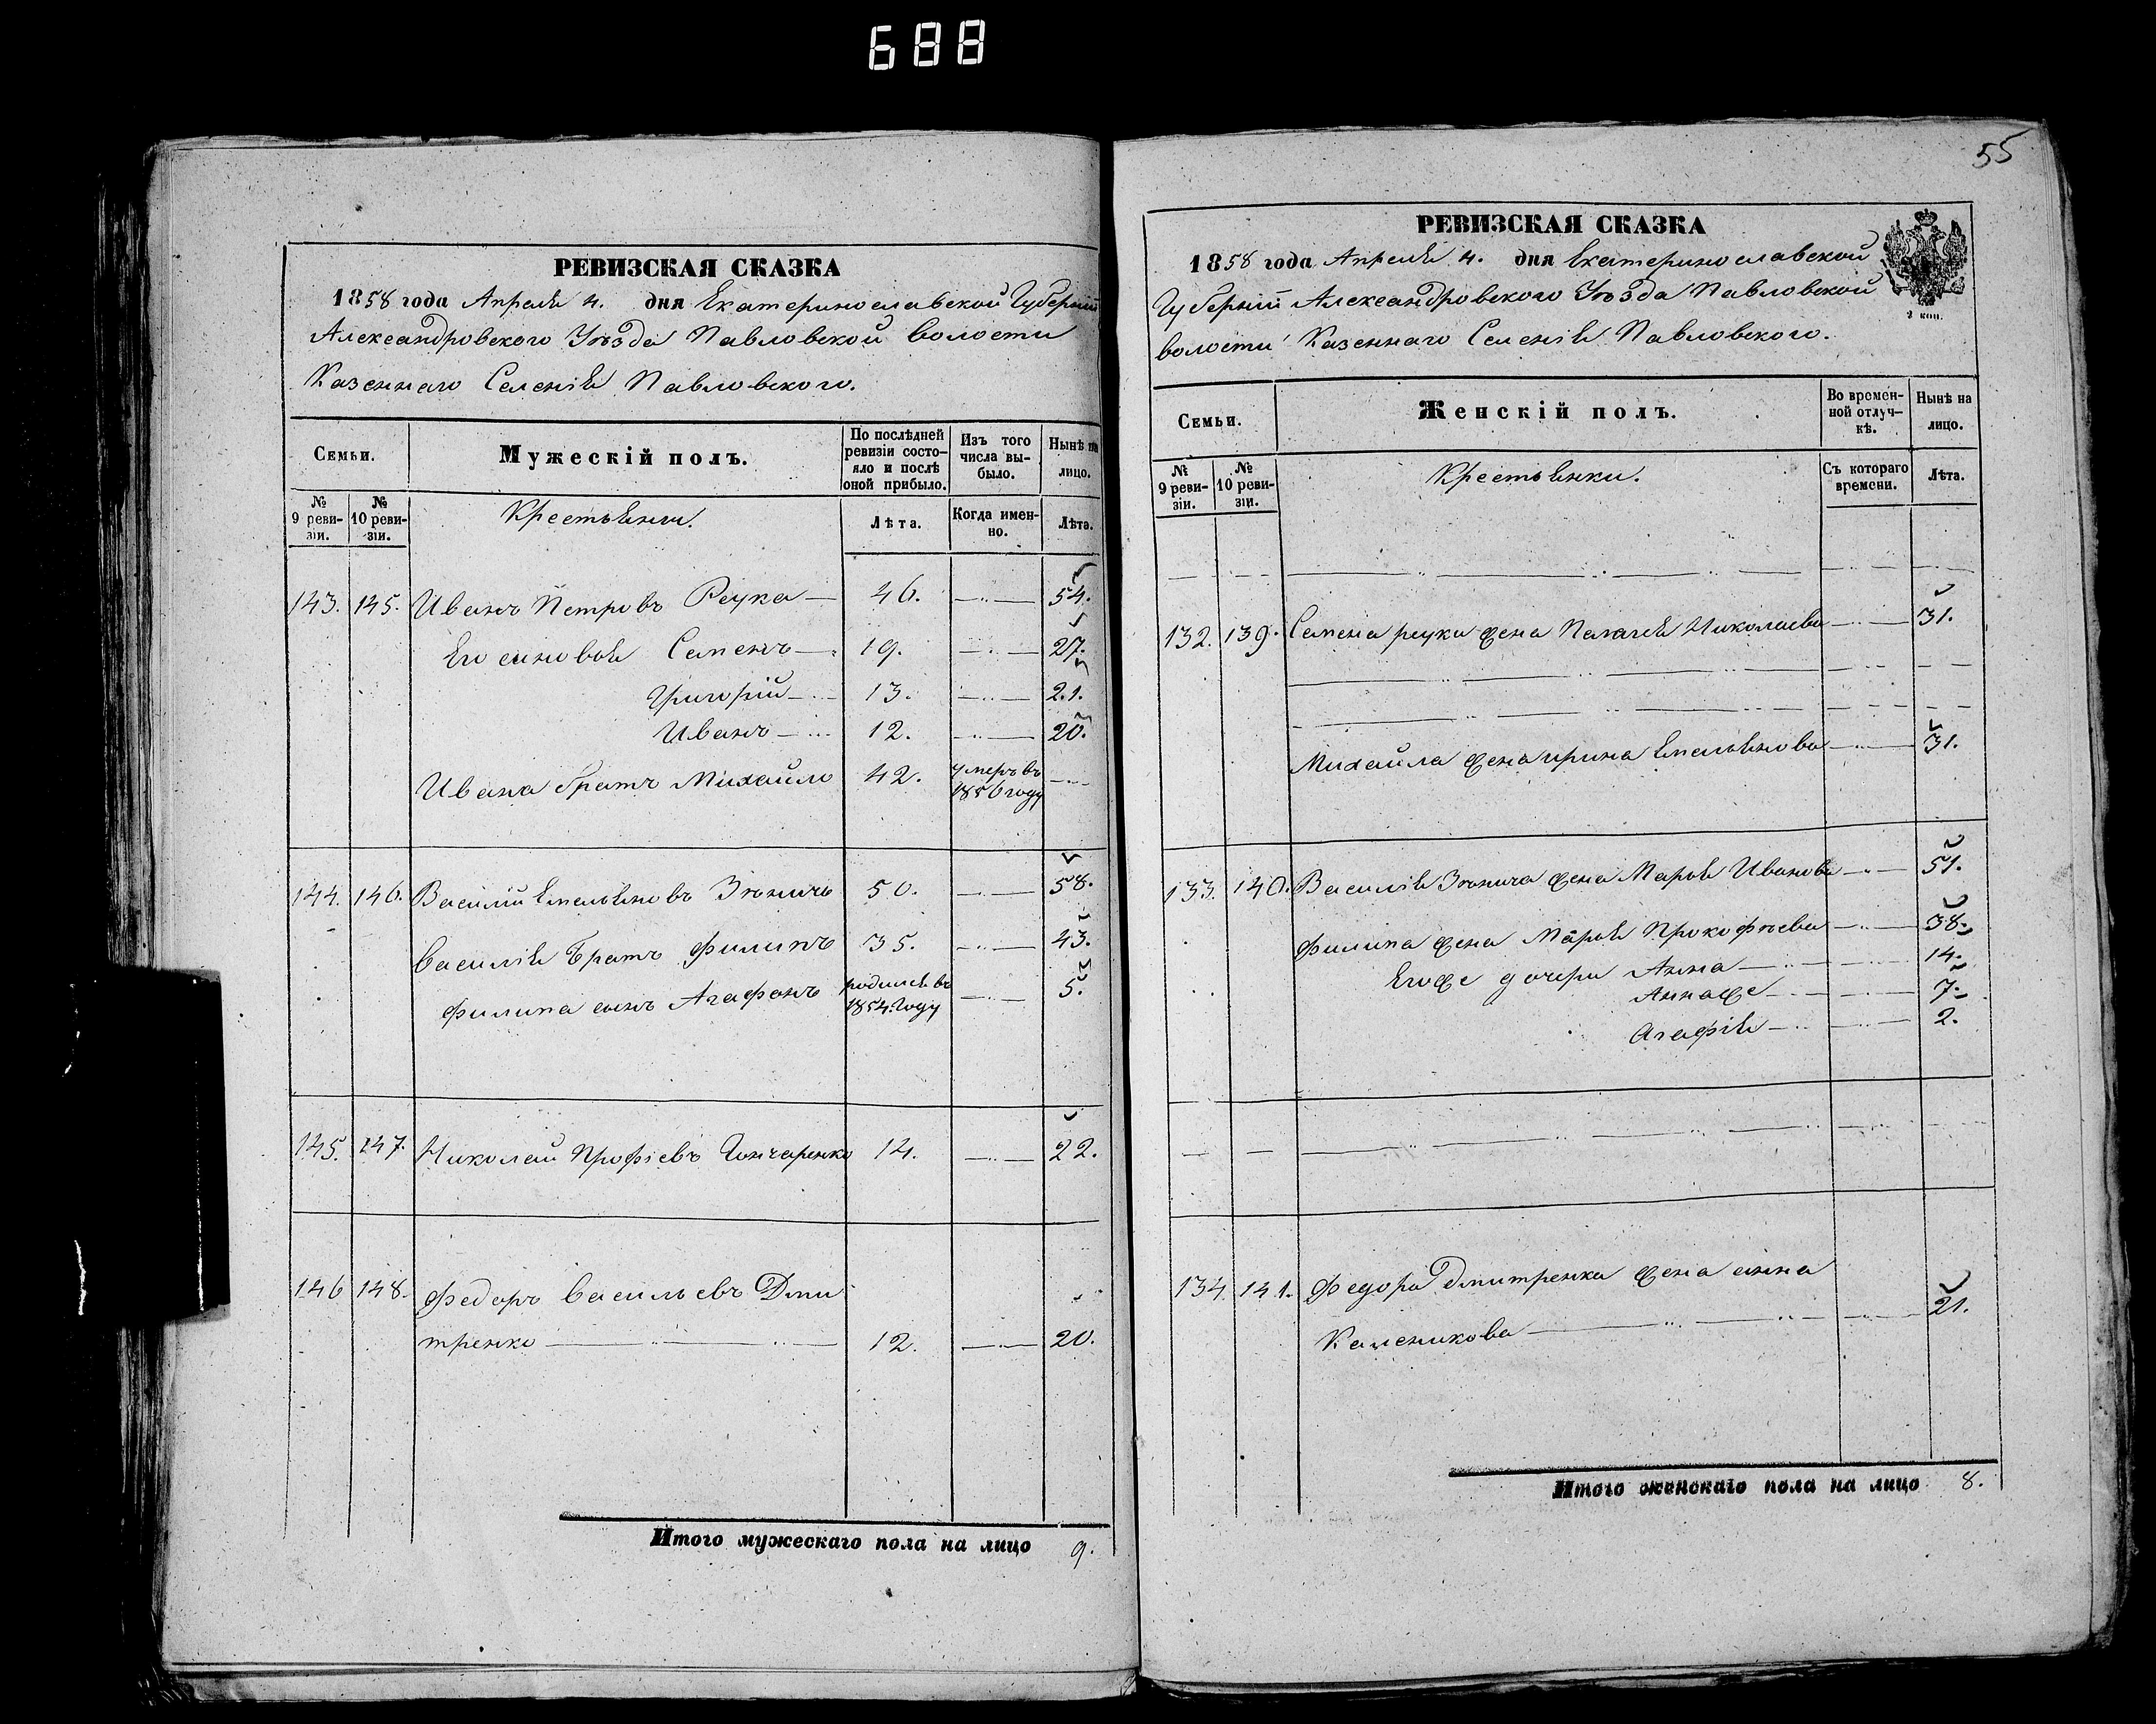 688
РЕВИЗСКАЯ СКАЗКА
1858 года Апреля 4. дня Екатеринославской Губерніи
Александровского Уѣзда Павловской волости
Казеннаго Селенія Павловского.
Семьи.
Мужескій полъ.
По послѣдней ревизіи состояло и послѣ оной прибыло.
Изъ того числа выбыло.
Нынѣ на лицо.
№ 9 ревизіи.
№ 10 ревизіи.
Крестьяни.
Лѣта.
Когда именно.
Лѣта.
143. 145. Иванъ Петровъ Реука 46. 54.
Его сыновья Семенъ 19. 27.
Григорій 13. 21.
Иванъ 12. 20.
Ивана братъ Михайло 42. умеръ въ 1856 году
144. 146. Василій Емельяновъ Зѣничъ 50. 58.
Василія Братъ Филипъ 35. 43.
Филипа сынъ Агафонъ родился въ 1854. году 5.
145. 147. Николай Профіевъ Гончаренко 14. 22.
146 148. Федоръ Васильевъ Дми
тренко 12. 20.
Итого мужескаго пола на лицо 9.
55
РЕВИЗСКАЯ СКАЗКА
1858 года Апреля 4. дня Екатеринославской
Губерніи Александровского Уѣзда Павловской
волости Казеннаго Селенія Павловского.
2 коп.
Семьи.
Женскій полъ.
Во временной отлучкѣ.
Нынѣ на лицо.
№ 9 ревизіи.
№ 10 ревизіи.
Крестьянки.
Съ котораго времени.
Лѣта.
132. 139. Семена реуки жена Палагея Николаева 31.
Михайла жена ирина Емельянова 31.
133. 140. Василія Зѣнича жена Марья Иванова 51.
Филипа жена Марья Прокофьева 38.
Егоже дочери Анна 14.
Аннаже 7.
Агафія 2.
134. 141. Федора Дмитренка жена анна
Каленикова 21.
Итого женскаго пола на лицо 8.